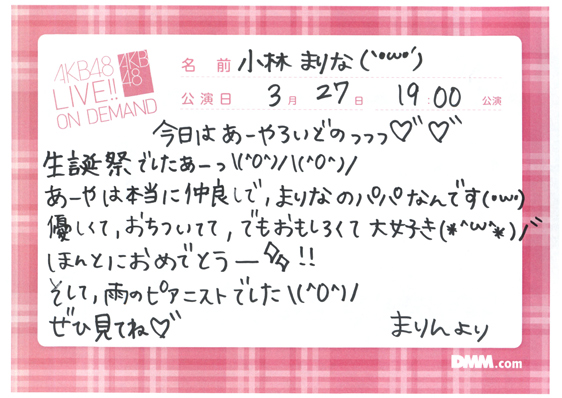 AKB48
LIVE!!
ON DEMAND
AKB
48
名 前 小林 まりな(`•ω•´)
公演日 3月 27日 19:00 公演
今日はあーやろいどのっっっ♡゛♡゛
生誕祭でしたあーっ\(^O^)/\(^O^)/
あーやは本当に仲良しで,まりなのパパなんです(•ω•)
優しくて,おちついてて,でもおもしろくて大好き(*^ω^*)ノ゛
ほんとにおめでとうー!!
そして,雨のピアニストでした\(^O^)/
ぜひ見てね♡゛
まりんより
DMM.com